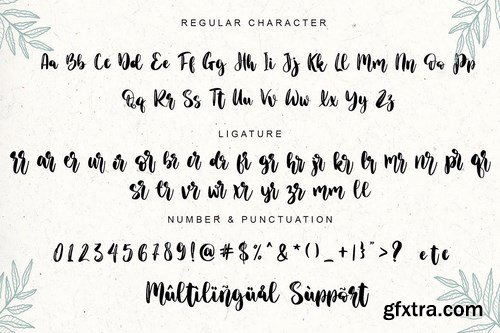 REGULAR CHARACTER
Aa Bb Cc Dd Ee Ff Gg Hh Ii Jj Kk Ll Mm Nn Oo Pp
Qq Rr Ss Tt Uu Vv Ww Xx Yy Zz
LIGATURE
rr ar er ur or br cr dr fr gr hr jr kr lr mr nr pr qr
sr tr vr wr xr yr zr mm ll
NUMBER & PUNCTUATION
0123456789!@#$%^&*()_+|}">? etc
Múltilïñgüâl Sùppõrt
gfxtra.com